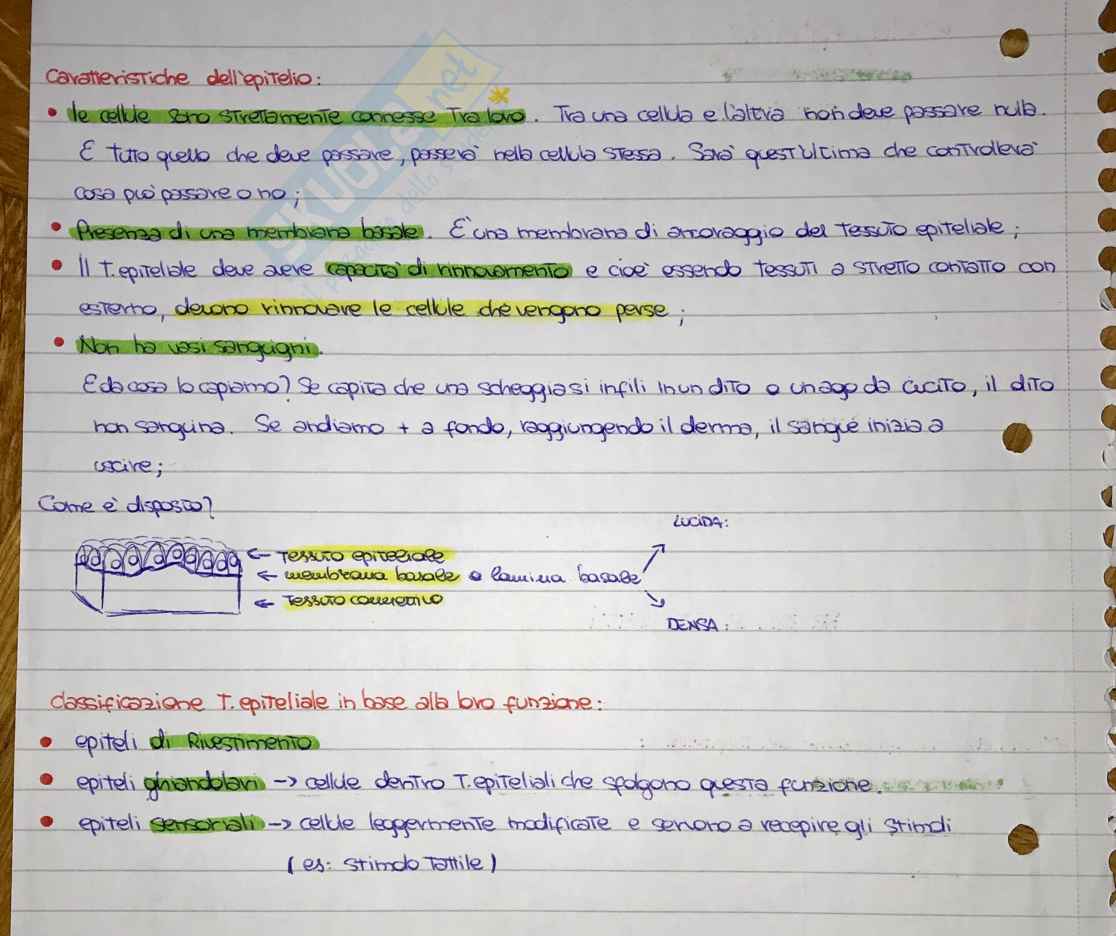 Caratteristiche dell'epitelio:
• le cellule sono strettamente connesse tra loro. Tra una cellula e l'altra non deve passare nulla.
E tutto quello che deve passare, passerà nella cellula stessa. Sarà quest'ultima che controllerà
cosa può passare o no;
• Presenza di una membrana basale. E' una membrana di ancoraggio del tessuto epiteliale;
• Il T. epiteliale deve avere capacità di rinnovamento e cioè essendo tessuti a stretto contatto con
esterno, devono rinnovare le cellule che vengono perse;
• Non ha vasi sanguigni.
E da cosa lo capiamo? Se capita che una scheggia si infili in un dito o un ago da cucito, il dito
non sanguina. Se andiamo + a fondo, raggiungendo il derma, il sangue inizia a
uscire;
Come è disposto?
LUCIDA:
← Tessuto epiteliale
← membrana basale o lamina basale
← Tessuto connettivo
DENSA:
Classificazione T. epiteliale in base alla loro funzione:
• epiteli di Rivestimento
• epiteli ghiandolari → cellule dentro T. epiteliali che svolgono questa funzione.
• epiteli sensoriali → cellule leggermente modificate e servono a recepire gli stimoli
(es: stimolo tattile)
SKUOLA.net